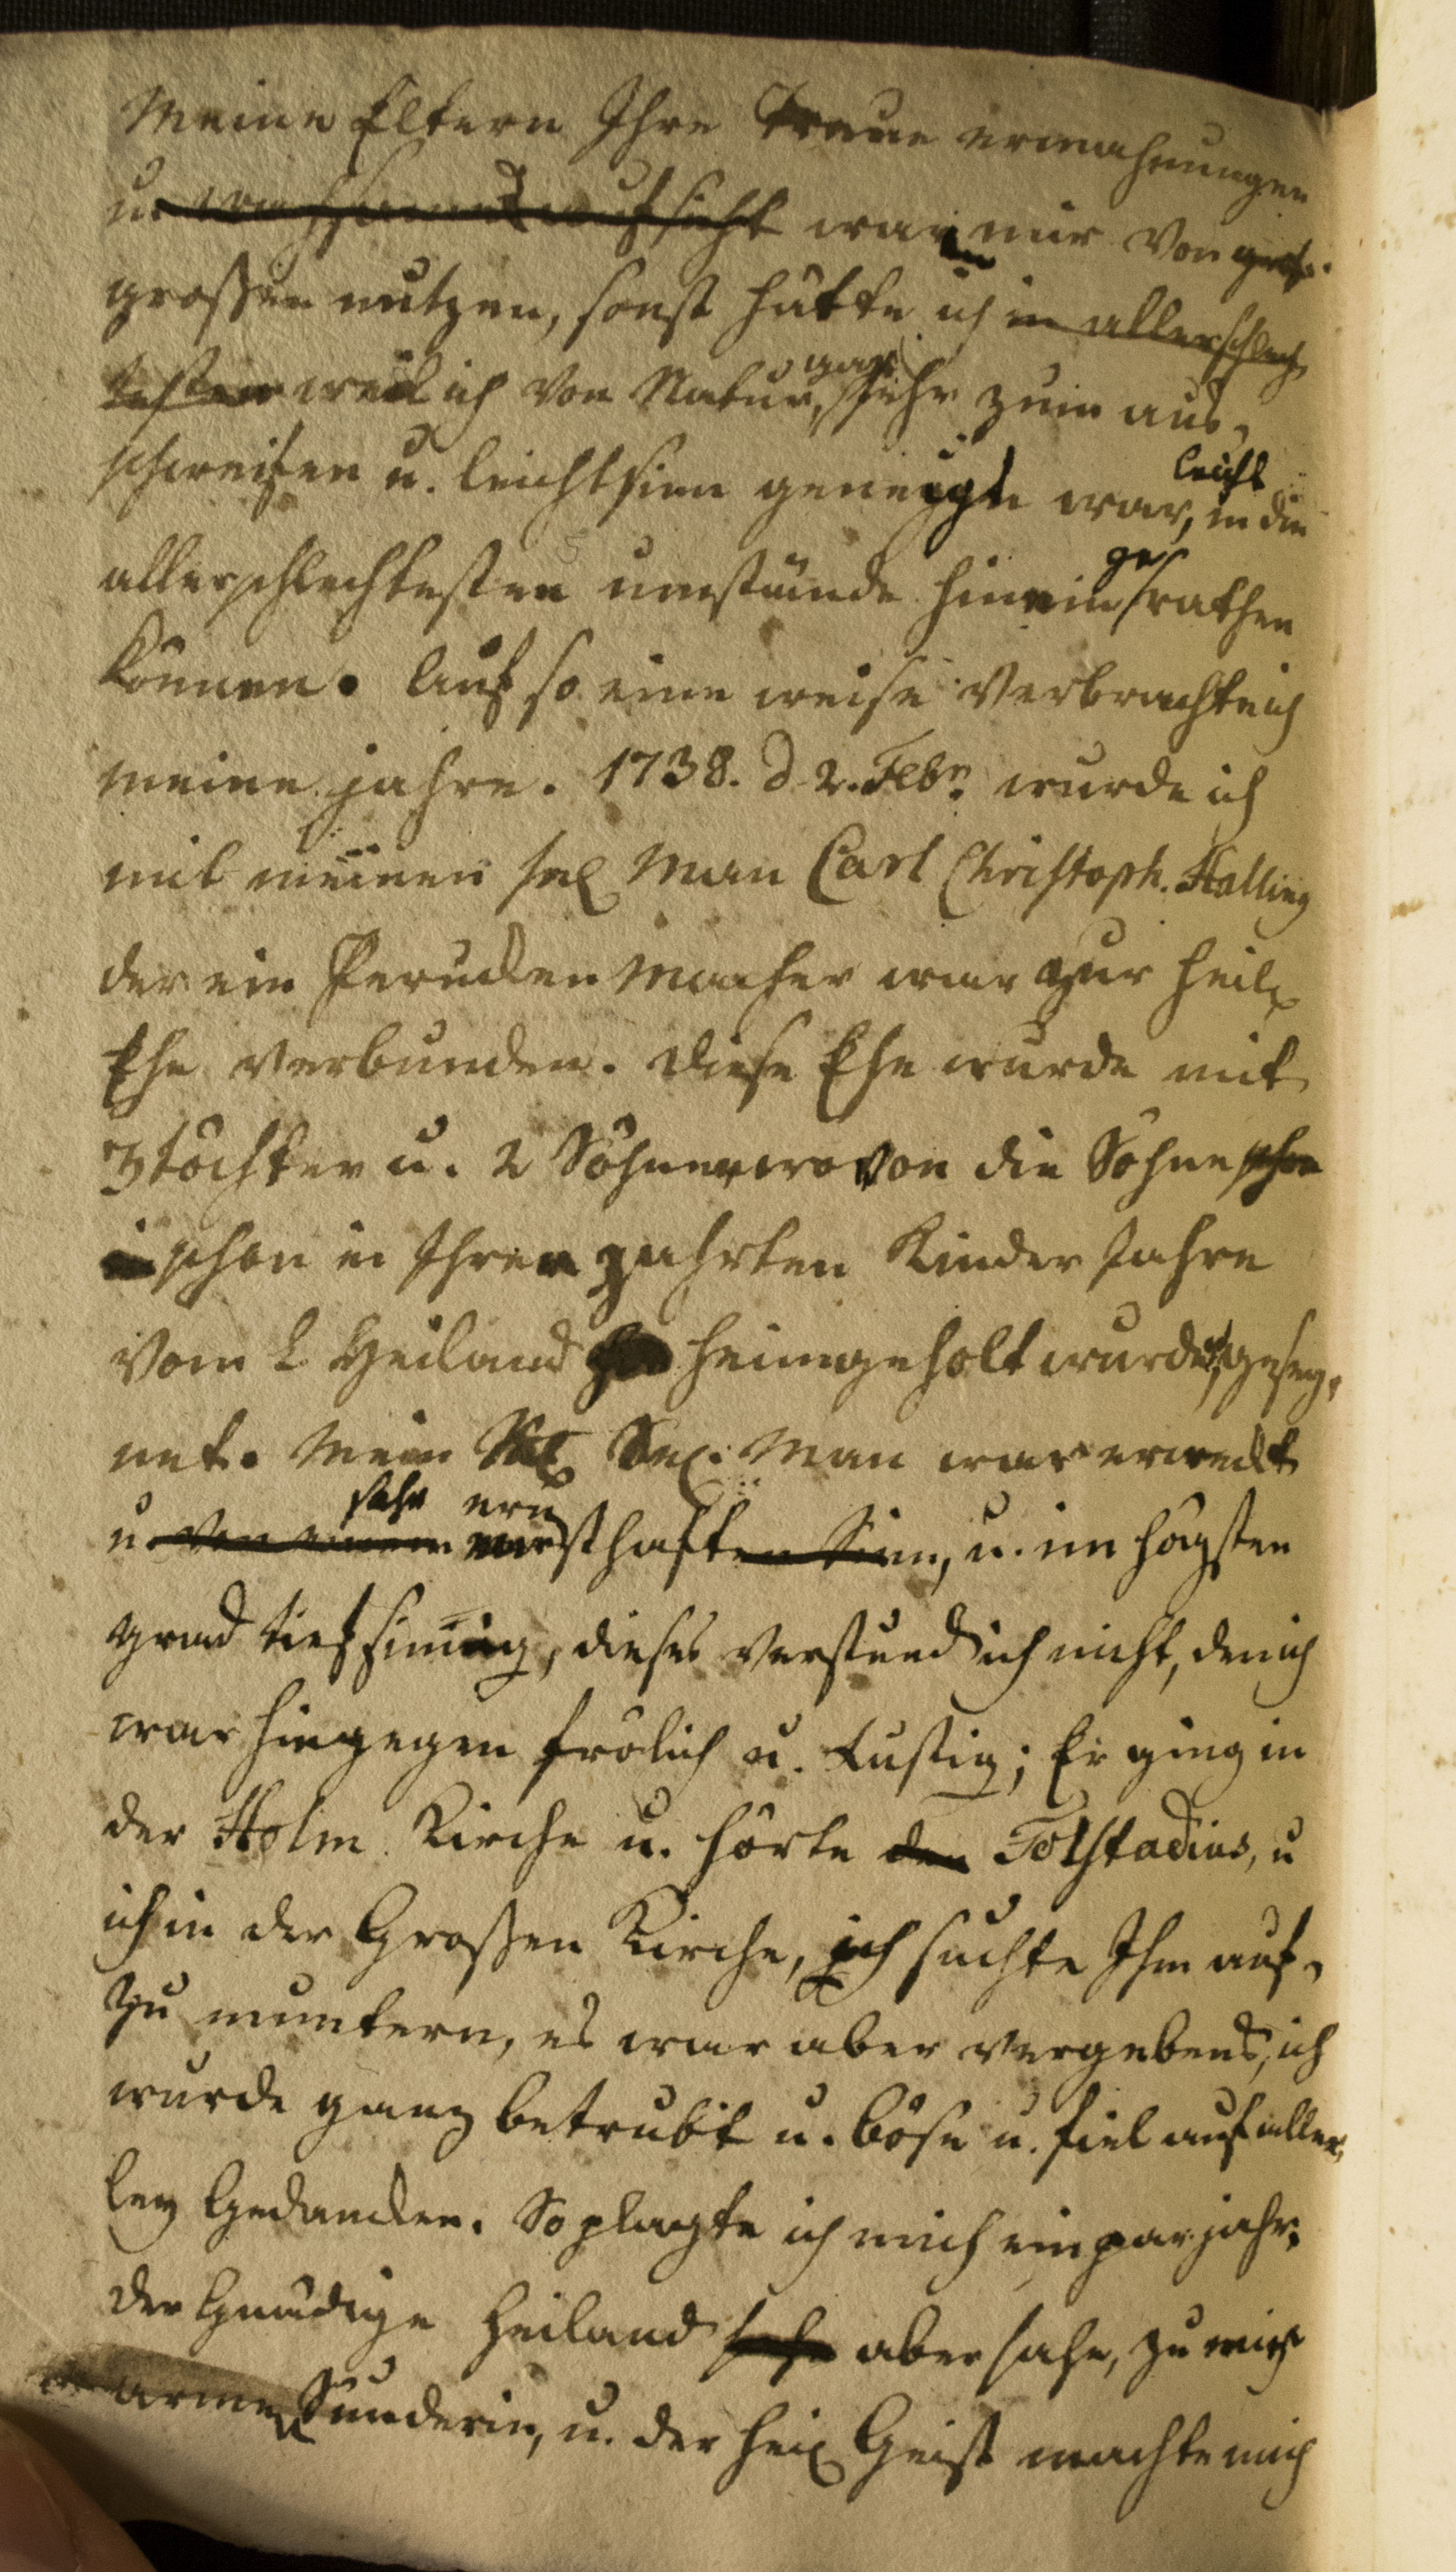 Meine Eltern Ihre Treue ermahnungen
u. wachsame aufsicht waren mir von gros
großen nutzen, sonst hätte ich in allerschlech
testen weil ich von Natur, gar sehr zum aus-
schweifen u. leichtsinn geneigt war, leicht in die
allerschlechtesten umstände hinein gerathen
können. Auf so eine weise verbrachte ich
meine jahre. 1738. d 2. Febr. wurde ich
mit meinen sel Man Carl Christoph. Halling
der ein Perucken macher war zur heil
Ehe verbunden. diese Ehe wurde mit
3 töchter u. 2 Söhnen wovon die Söhne schon
schon in Ihren zahrten Kinder Jahre
vom l Heiland heimgeholt wurden, geseg-
net. Mein Sel. Man war erweckt
u. von einem sehr ernsthaften Sinn, u. im högsten
grad tiefsinnig, dieses verstund ich nicht, den ich
war hingegen frölich u. Lustig; Er ging in
der Holm Kirche u. hörte den Tolstadius, u
ich in der Großen Kirche, ich suchte Ihm auf-
zu muntern, es war aber vergebens, ich
wurde ganz betrubt u. böse u. fiel auf aller-
ley Gedancken. So plagte ich mich ein par jahr.
der Gnädige Heiland sahe aber sahe, zu mich
arme Sünderin, u. der heil Geist machte mich